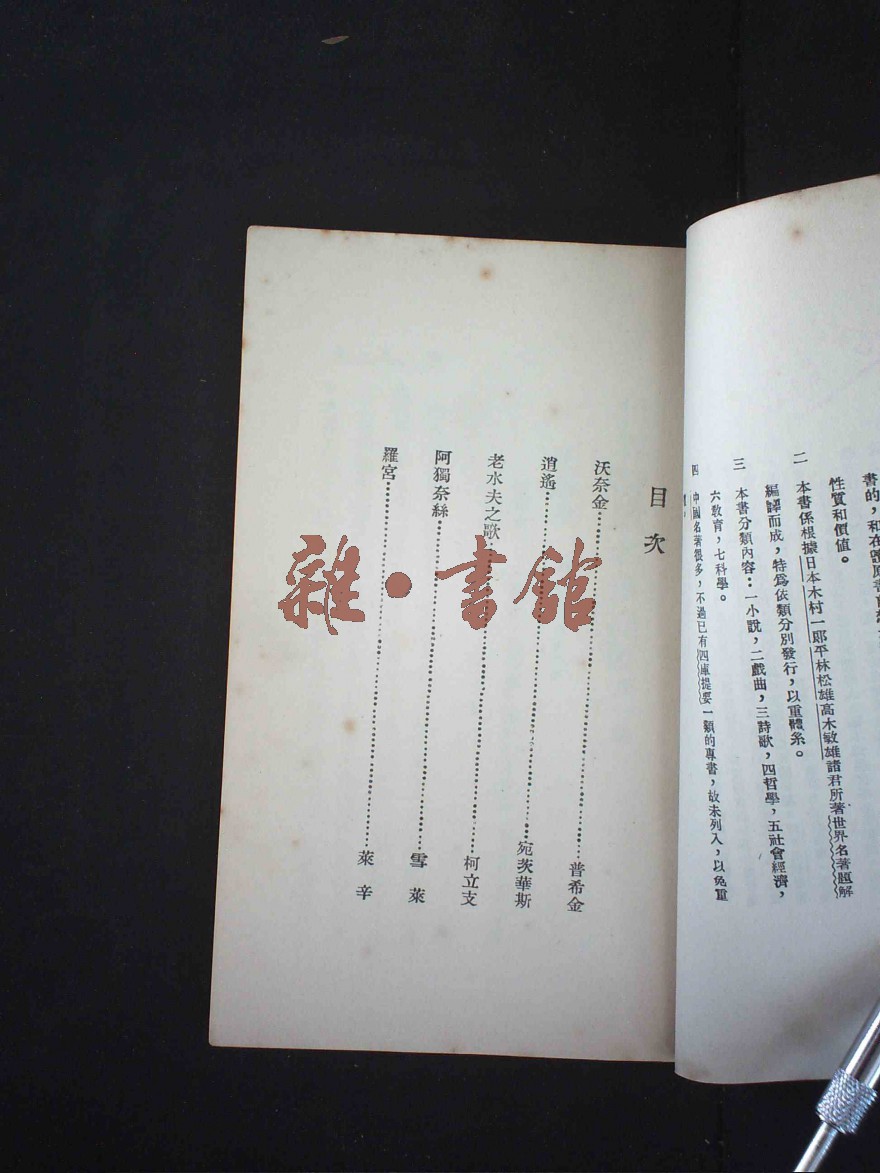 書的，和在
性質和價值。
二 本書係根據日本木村一郎平林松雄高木敏雄諸君所著世界名著題解
編譯而成，特爲依類分別發行，以重體系。
三 本書分類內容：一小說，二戲曲，三詩歌，四哲學，五社會經濟，
六敎育，七科學。
四 中國名著很多，不過已有四庫提要一類的專書，故未列入，以免重
目次
沃奈金…………普希金
逍遙…………宛茨華斯
老水夫之歌…………柯立支
阿獨奈絲…………雪萊
羅宮…………萊辛
雜·書館